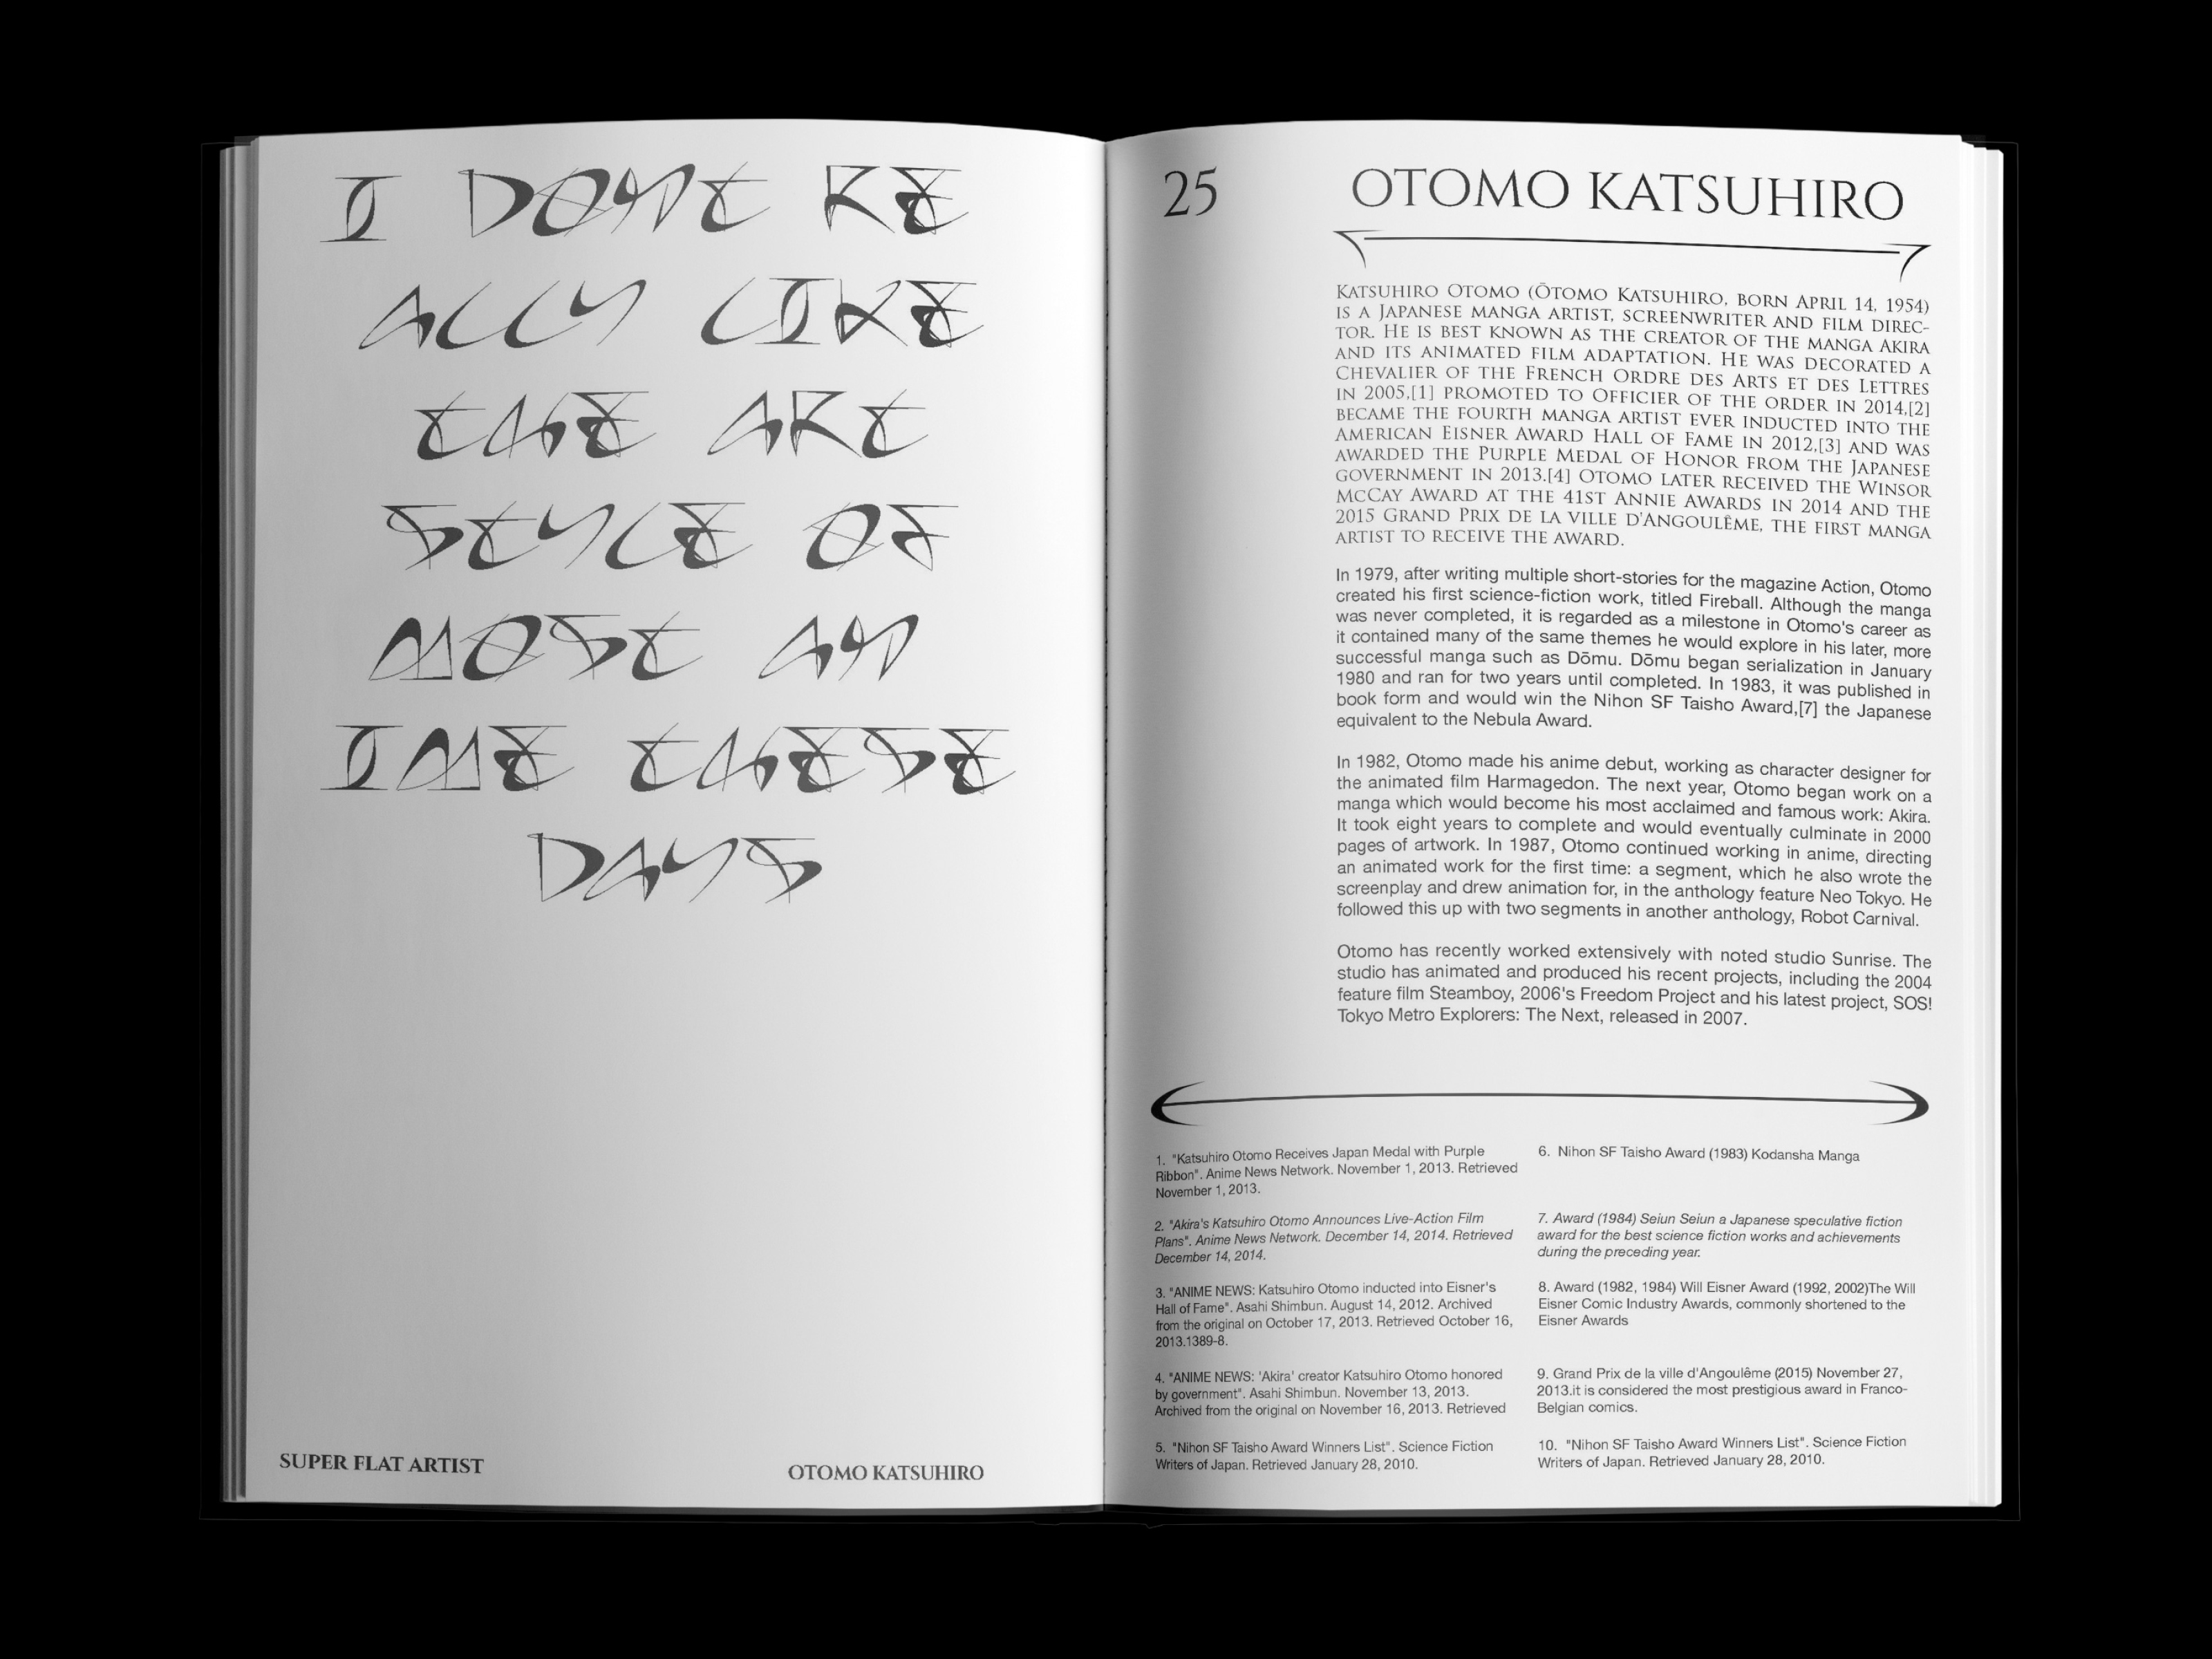 I DONT RE
ALLY LIKE
THE ART
STYLE OF
MOST AN
IME THESE
DAYS
SUPER FLAT ARTIST
OTOMO KATSUHIRO
25
OTOMO KATSUHIRO
KATSUHIRO OTOMO (ŌTOMO KATSUHIRO, BORN APRIL 14, 1954)
IS A JAPANESE MANGA ARTIST, SCREENWRITER AND FILM DIREC-
TOR. HE IS BEST KNOWN AS THE CREATOR OF THE MANGA AKIRA
AND ITS ANIMATED FILM ADAPTATION. HE WAS DECORATED A
CHEVALIER OF THE FRENCH ORDRE DES ARTS ET DES LETTRES
IN 2005,[1] PROMOTED TO OFFICIER OF THE ORDER IN 2014,[2]
BECAME THE FOURTH MANGA ARTIST EVER INDUCTED INTO THE
AMERICAN EISNER AWARD HALL OF FAME IN 2012,[3] AND WAS
AWARDED THE PURPLE MEDAL OF HONOR FROM THE JAPANESE
GOVERNMENT IN 2013.[4] OTOMO LATER RECEIVED THE WINSOR
MCCAY AWARD AT THE 41ST ANNIE AWARDS IN 2014 AND THE
2015 GRAND PRIX DE LA VILLE D'ANGOULÊME, THE FIRST MANGA
ARTIST TO RECEIVE THE AWARD.
In 1979, after writing multiple short-stories for the magazine Action, Otomo
created his first science-fiction work, titled Fireball. Although the manga
was never completed, it is regarded as a milestone in Otomo's career as
it contained many of the same themes he would explore in his later, more
successful manga such as Dōmu. Dōmu began serialization in January
1980 and ran for two years until completed. In 1983, it was published in
book form and would win the Nihon SF Taisho Award,[7] the Japanese
equivalent to the Nebula Award.
In 1982, Otomo made his anime debut, working as character designer for
the animated film Harmagedon. The next year, Otomo began work on a
manga which would become his most acclaimed and famous work: Akira.
It took eight years to complete and would eventually culminate in 2000
pages of artwork. In 1987, Otomo continued working in anime, directing
an animated work for the first time: a segment, which he also wrote the
screenplay and drew animation for, in the anthology feature Neo Tokyo. He
followed this up with two segments in another anthology, Robot Carnival.
Otomo has recently worked extensively with noted studio Sunrise. The
studio has animated and produced his recent projects, including the 2004
feature film Steamboy, 2006's Freedom Project and his latest project, SOS!
Tokyo Metro Explorers: The Next, released in 2007.
1. "Katsuhiro Otomo Receives Japan Medal with Purple
Ribbon". Anime News Network. November 1, 2013. Retrieved
November 1, 2013.
2. "Akira's Katsuhiro Otomo Announces Live-Action Film
Plans". Anime News Network. December 14, 2014. Retrieved
December 14, 2014.
3. "ANIME NEWS: Katsuhiro Otomo inducted into Eisner's
Hall of Fame". Asahi Shimbun. August 14, 2012. Archived
from the original on October 17, 2013. Retrieved October 16,
2013.1389-8.
4. "ANIME NEWS: 'Akira' creator Katsuhiro Otomo honored
by government". Asahi Shimbun. November 13, 2013.
Archived from the original on November 16, 2013. Retrieved
5. "Nihon SF Taisho Award Winners List". Science Fiction
Writers of Japan. Retrieved January 28, 2010.
6. Nihon SF Taisho Award (1983) Kodansha Manga
7. Award (1984) Seiun Seiun a Japanese speculative fiction
award for the best science fiction works and achievements
during the preceding year.
8. Award (1982, 1984) Will Eisner Award (1992, 2002)The Will
Eisner Comic Industry Awards, commonly shortened to the
Eisner Awards
9. Grand Prix de la ville d'Angoulême (2015) November 27,
2013.it is considered the most prestigious award in Franco-
Belgian comics.
10. "Nihon SF Taisho Award Winners List". Science Fiction
Writers of Japan. Retrieved January 28, 2010.